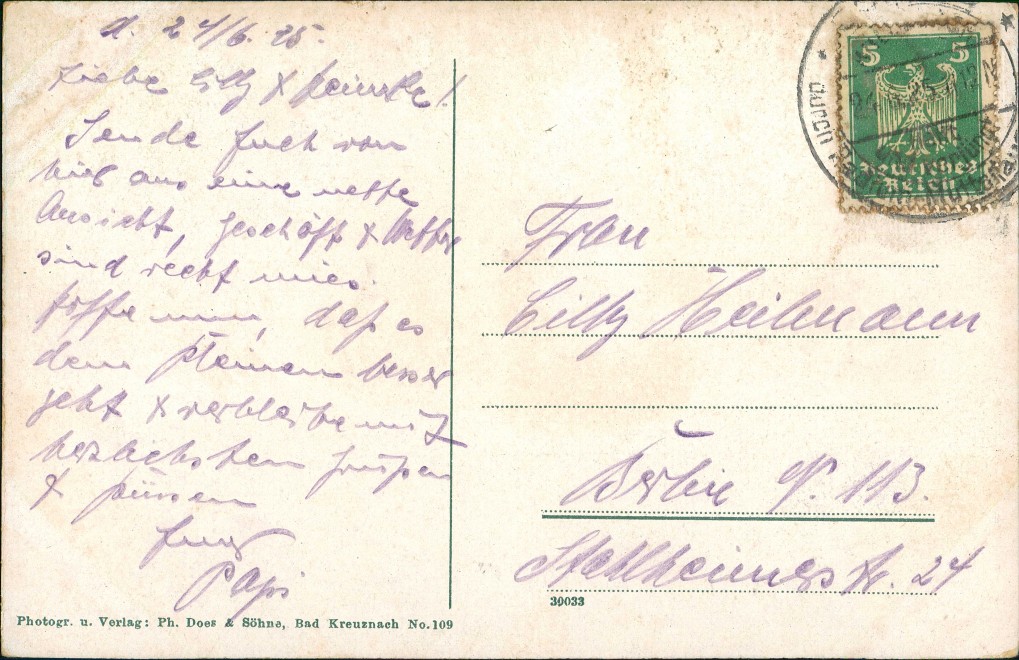 d. 24/6. 25.
Liebe Cilly &
Sende Euch von
hier aus eine nette
Ansicht, Geschäft & Wetter
sind recht mies.
Hoffe nun, daß es
dem Kleinen besser
geht & verbleibe mit
herzlichsten Grüßen
& Küssen
Euer
Papi
Photogr. u. Verlag: Ph. Does & Söhne, Bad Kreuznach No. 109
5 5
Deutsches
Reich
Frau
Cilly Heilmann
Berlin N. 113.
Str. 24
30033